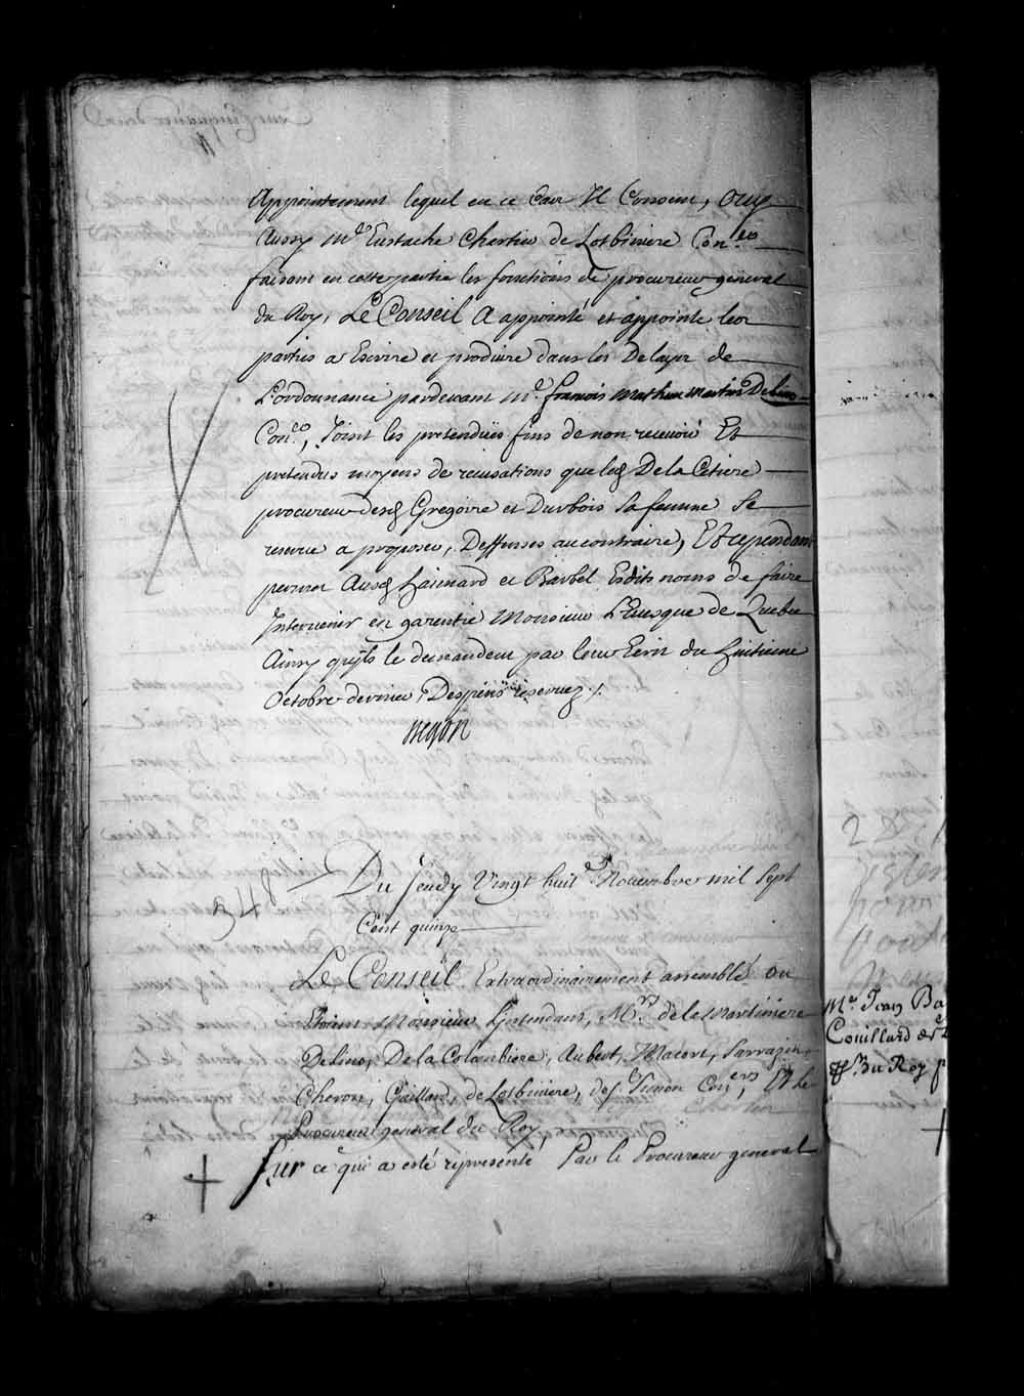 Appointement lequel en ce Cas Il Consent, Ouy
Aussy Me Eustache Chartier de Lotbiniere Conler
faisant en cette partie les fonctions de procureur general
du Roy, Le Conseil A appointé et appointe les
parties a Escrire et produire dans les Delays de
L'ordonnance pardevant Me. francois Mathieu Martin Delino
Coner, Joint les pretendües fins de non recevoir Et
pretendus moyens de recusations que led De la Cetiere
procureur desd Gregoire et Durbois sa femme Se
reserve a proposer, Deffenses au contraire, Et cependant
permet Ausd haimard et Barbel Esdits noms de faire
Intervenir en garentie Monsieur L'Evesque de Quebec
Ainsy qu'ils le demandent par leur Ecrit du huitieme
Octobre dernier, Despens reservez ./.
Begon
348 Du Jeudy Vingt huit e Novembre mil Sept
Cent quinze
Le Conseil Extraordinairement assemblé ou
Etoient Monsieur L'Intendant, Mrs de la Martiniere
Delino, De la Colombiere, Aubert, Macart, Sarrazin,
Cheron, Gaillard, de Lotbiniere, des Simon Coners, Et Le
Procureur general du Roy
Sur ce qui a esté representé Par le Procureur general
Me Jean Ba
Couillard
du Roy p